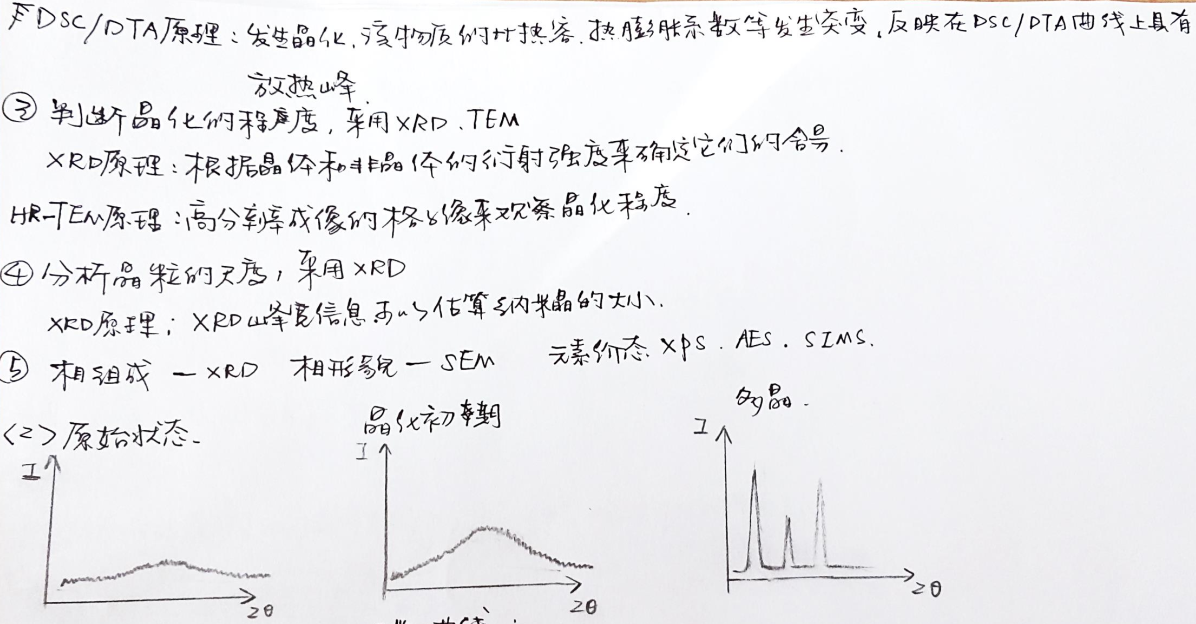 DSC/DTA原理：发生晶化，该物质的比热容、热膨胀系数等发生突变，反映在DSC/DTA曲线上具有
放热峰.
③ 判断晶化的程度，采用XRD、TEM
XRD原理：根据晶体和非晶体的衍射强度来确定它们的含量.
HR-TEM原理：高分辨率成像的格子像来观察晶化程度.
④ 分析晶粒的尺度，采用XRD
XRD原理；XRD峰宽信息可以估算纳米晶的大小.
⑤ 相组成 — XRD 相形貌 — SEM 元素价态 XPS. AES. SIMS.
<2> 原始状态-
晶化初期
多晶.
I
2θ
I
2θ
I
2θ